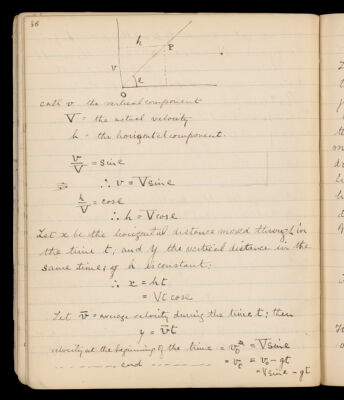 56
h
P
v
e
O
call v the vertical component
V = the actual velocity
h = the horizontal component.
v/V = sin e
∴ v = V sin e
h/V = cos e
∴ h = V cos e
Let x be the horizontal distance moved through in
the time t; and y the vertical distance in the
same time; h is constant;
∴ x = ht
= Vt cos e
Let v̄ = average velocity during the time t; then
y = v̄t
velocity at the beginning of the time = v₀ = V sin e
" end " = vₜ = v₀ - gt
= V sin e - gt